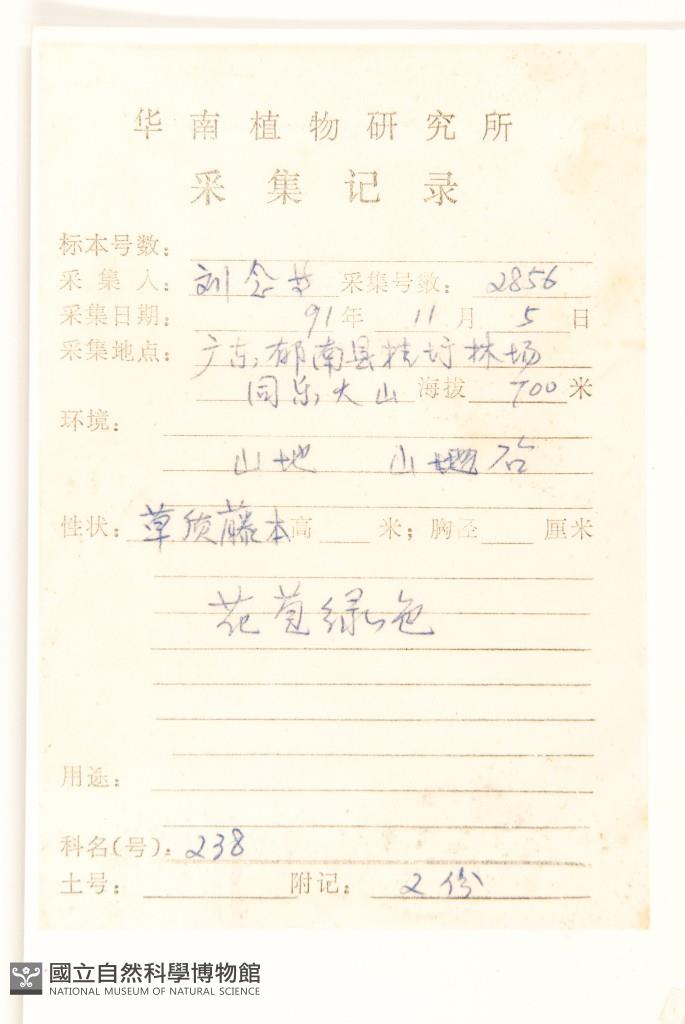 华南植物研究所
采集记录
标本号数：
采集人：刘念 采集号数：2856
采集日期：91年11月5日
采集地点：广东，郁南县桂圩林场
同乐大山 海拔 700米
环境：
山地 山
性状：草质藤本 高 米；胸径 厘米
花苞绿色
用途：
科名(号)：238
土号： 附记：2份
國立自然科學博物館
NATIONAL MUSEUM OF NATURAL SCIENCE